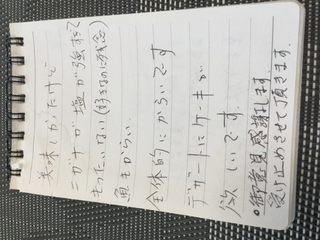 美味しかったけど
ニガナが塩が強すぎて
もったいない(好きなのに残念)
魚もからい
全体的にからいです
デザートにケーキが
欲しいです。
・御意見感謝します
受け止めさせて頂きます。